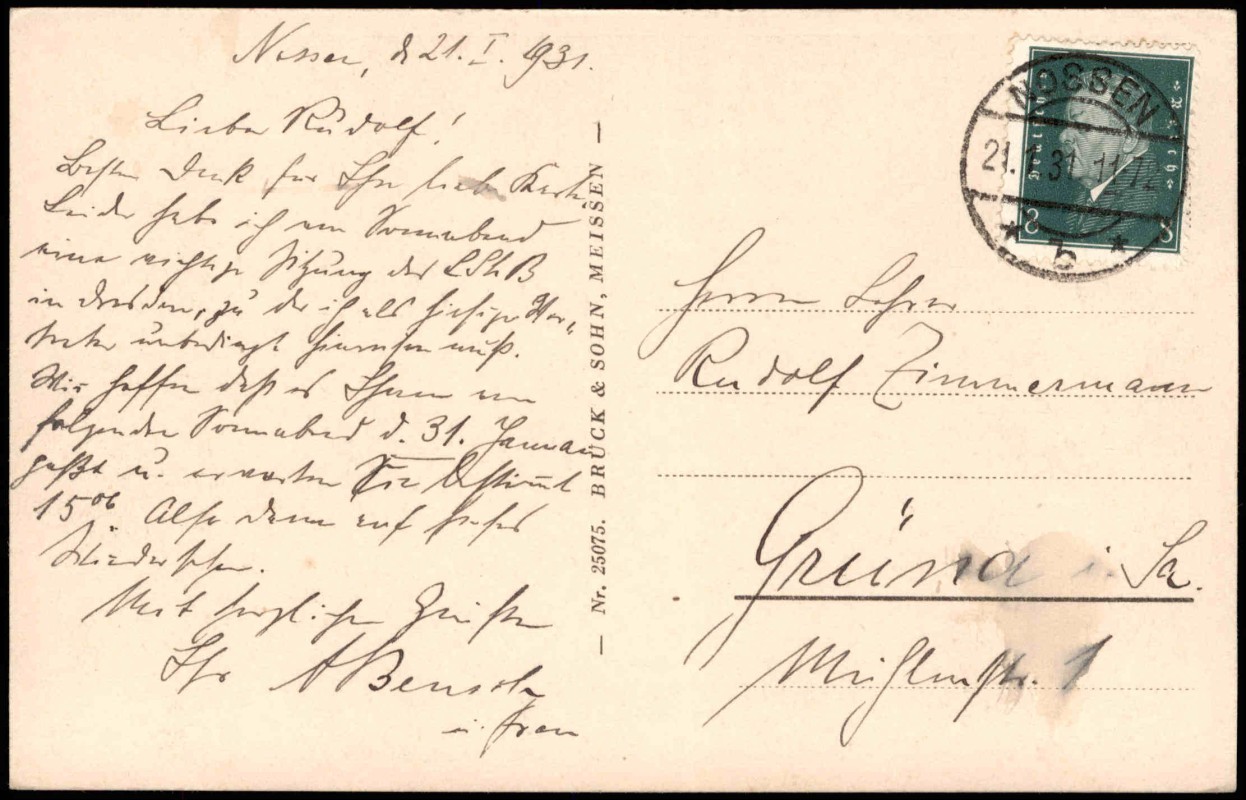 Nossen, d 21. I. 1931.
Lieber Rudolf!
Besten Dank für Ihre liebe Karte.
Leider habe ich am Sonnabend
eine wichtige Sitzung des LStB
in Dresden, zu der ich als hiesiger Ver-
treter unbedingt hinreisen muß.
Wir hoffen daß es Ihnen am
folgenden Sonnabend d. 31. Januar
paßt u. erwarten Sie bestimmt
15⁰⁶. Also dann auf frohes
Wiedersehen.
Mit herzlichen Grüßen
Ihr A
u. Frau
– Nr. 25075. BRÜCK & SOHN, MEISSEN –
NOSSEN
21.1.31. 11-12
* b *
Deutsches Reich
8 8
Herrn Lehrer
Rudolf Zimmermann
Grüna i. Sa.
Mühlenstr. 1